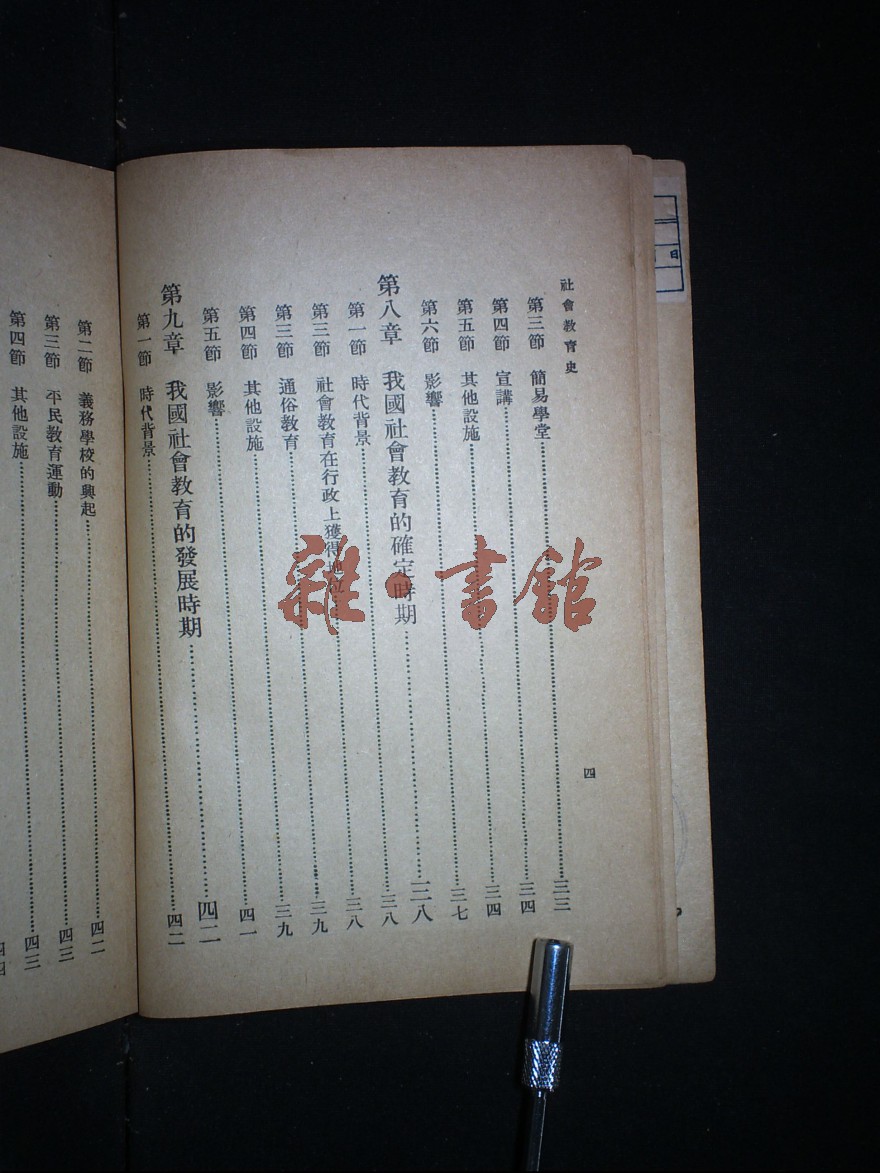 社會教育史
四
第三節 簡易學堂……三三
第四節 宣講……三四
第五節 其他設施……三四
第六節 影響……三七
第八章 我國社會教育的確定時期……三八
第一節 時代背景……三八
第三節 社會教育在行政上獲得地位……三八
第三節 通俗教育……三九
第四節 其他設施……三九
第五節 影響……四一
第九章 我國社會教育的發展時期……四二
第一節 時代背景……四二
第二節 義務學校的興起……四二
第三節 平民教育運動……四三
第四節 其他設施……四三
四四
日
雜·書館